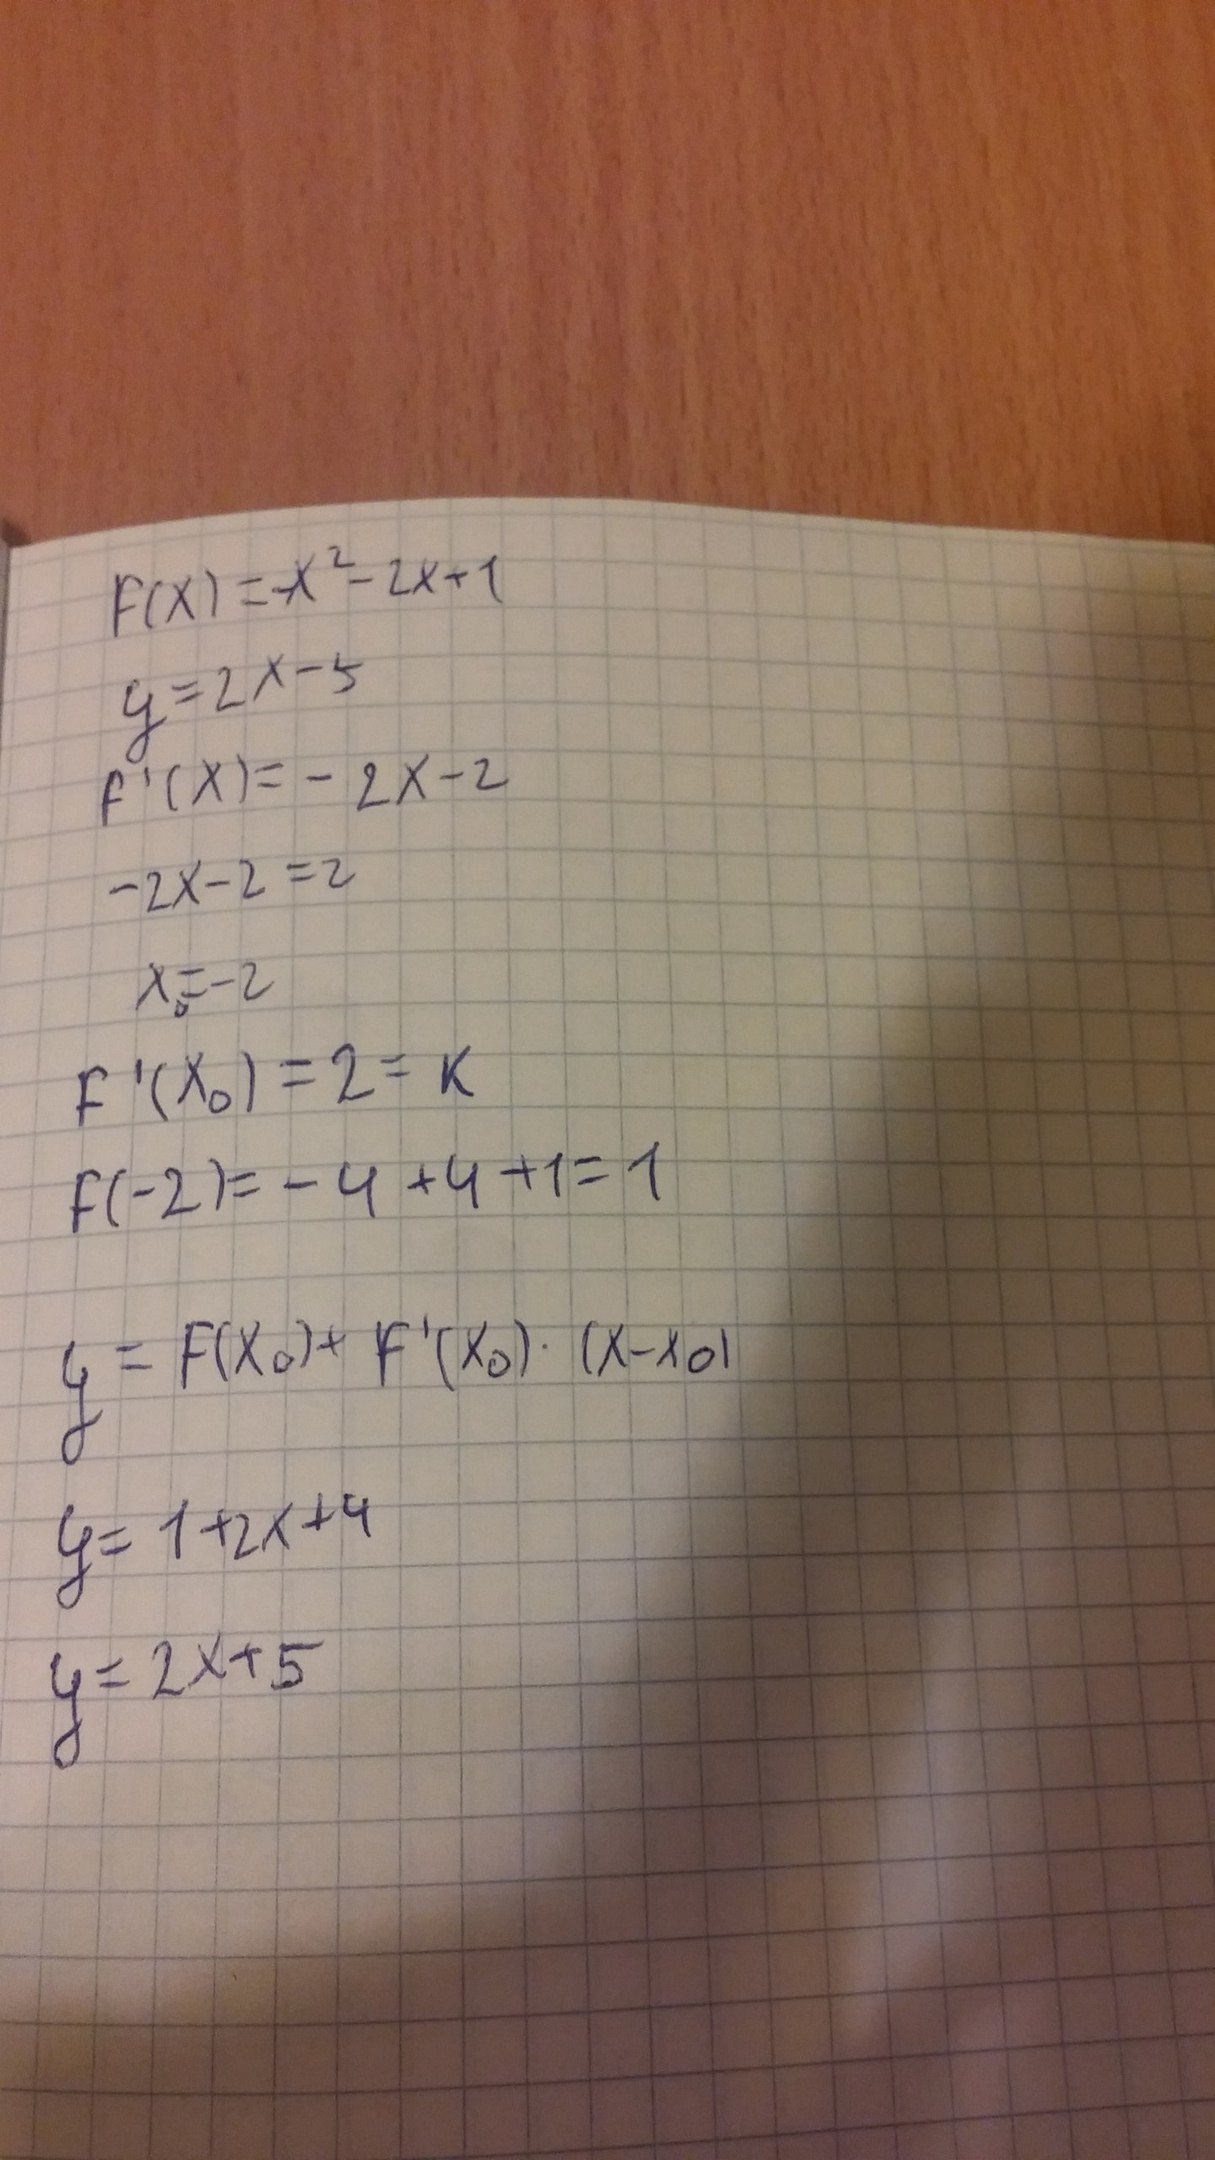 F(x) = -x² - 2x + 1
y = 2x - 5
F'(x) = - 2x - 2
-2x - 2 = 2
x₀ = -2
F'(x₀) = 2 = K
F(-2) = - 4 + 4 + 1 = 1
y = F(x₀) + F'(x₀) · (x - x₀)
y = 1 + 2x + 4
y = 2x + 5